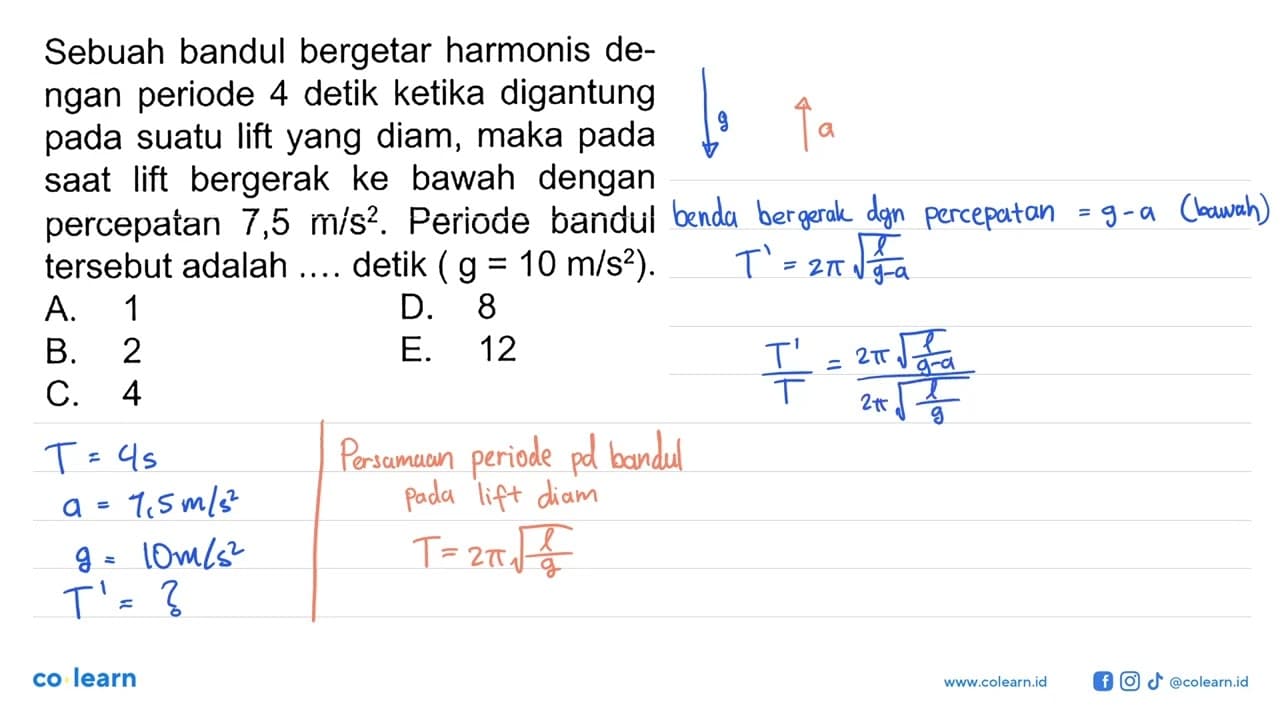 Sebuah bandul bergetar harmonis de-
ngan periode 4 detik ketika digantung
pada suatu lift yang diam, maka pada
saat lift bergerak ke bawah dengan
percepatan 7,5 m/s². Periode bandul
tersebut adalah .... detik ( g = 10 m/s²).
A. 1
B. 2
C. 4
D. 8
E. 12
g
a
benda bergerak dgn percepatan = g-a (bawah)
T' = 2π√(l/(g-a))
T'/T = 2π√(l/(g-a)) / 2π√(l/g)
T = 4s
a = 7,5 m/s²
g = 10m/s²
T' = ?
Persamaan periode pd bandul
pada lift diam
T = 2π√(l/g)
co learn
www.colearn.id
@colearn.id